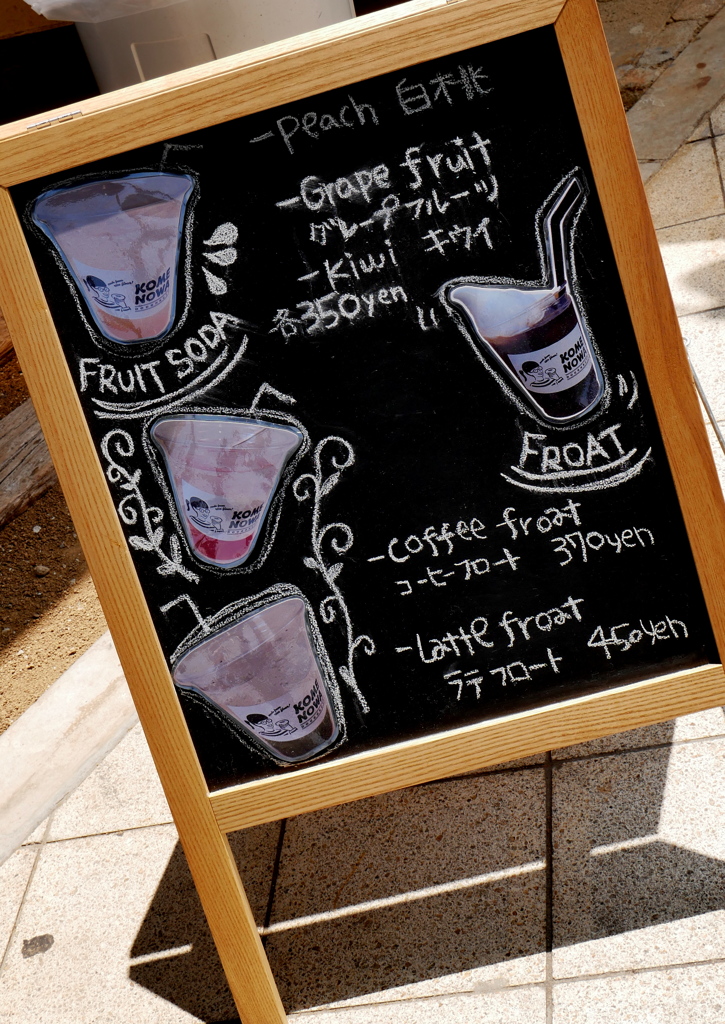 -peach 白木桃
-Grape fruit
グレープフルーツ
-kiwi キウイ
各350yen
KOME
NOWA
FRUIT SODA
KOME
NOWA
FROAT
KOME
NOWA
-Coffee froat
コーヒーフロート 370yen
-Latte froat
ラテフロート 450yen
KOME
NOWA